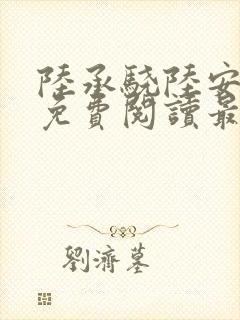 陸承驍陸安
免費閱讀最
劉濟墓